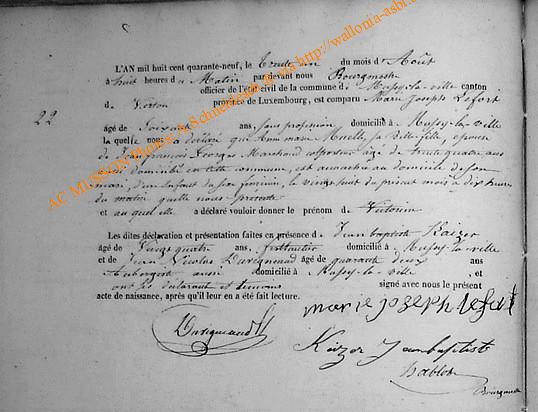 L'AN mil huit cent quarante-neuf, le Trente un du mois d'Août
à huit heures du Matin par devant nous Bourgmestre
officier de l'état civil de la commune de Mussy-la-ville canton
de Virton province de Luxembourg, est comparu Marie Joseph Lefort
22
âgé de ans, sans profession domicilié à Mussy-la-ville
la quelle nous a déclaré que Anne marie sa Belle fille, épouse
de Jean françois Georges Marchand colporteur âgé de trente quatre ans
aussi domicilié en cette commune, est accouchée au domicile de son
mari, d'un Enfant du sexe féminin, le vingt huit du présent mois à dix heures
du matin quelle nous présente
et au quel elle a déclaré vouloir donner le prénom de Victorine
Les dites déclaration et présentation faites en présence de Jean baptiste Kaizer
âgé de Vingt quatre ans, Instituteur domicilié à Mussy-la-ville
et de Jean Nicolas Duvigneaud âgé de quarante deux ans
Aubergiste aussi domicilié à Mussy-la-ville, et
ont les déclarante et témoins signé avec nous le présent
acte de naissance, après qu'il leur en a été fait lecture.
marie joseph lefort
Duvigneaud
Kaizer Jean baptiste
Bourgmestre
AC MUSSON Photos A Schneiders http://wallonia-asbl